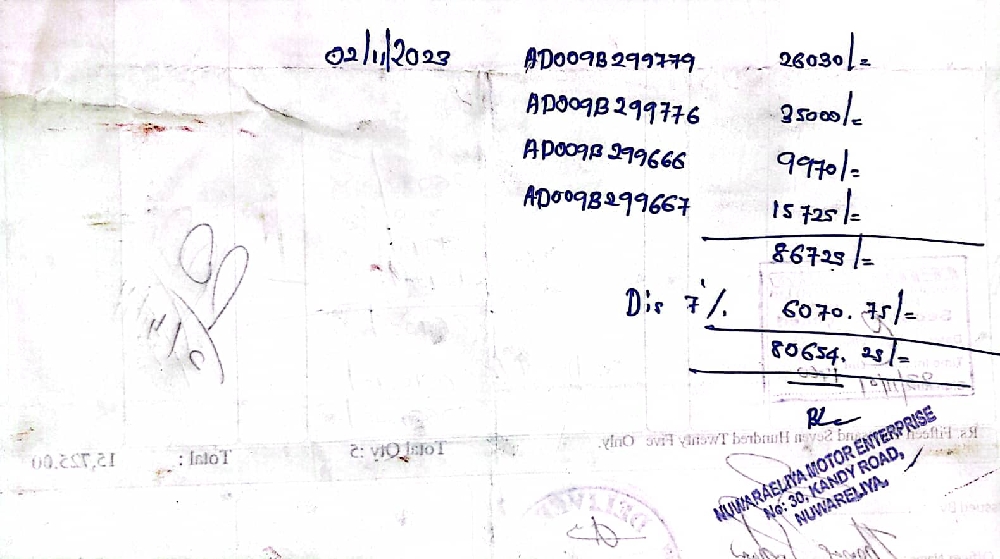 02/11/2023 AD009B299779 26030/=
AD009B299776 35000/=
AD009B299666 9970/=
AD009B299667 15725/=
86725/=
Dis 7% 6070.75/=
80654.25/=
NUWARAELIYA MOTOR ENTERPRISE
No: 30, KANDY ROAD,
NUWARELIYA.
Rs. Fifteen Thousand Seven Hundred Twenty Five Only.
Total Qty: 5 Total : 15,725.00